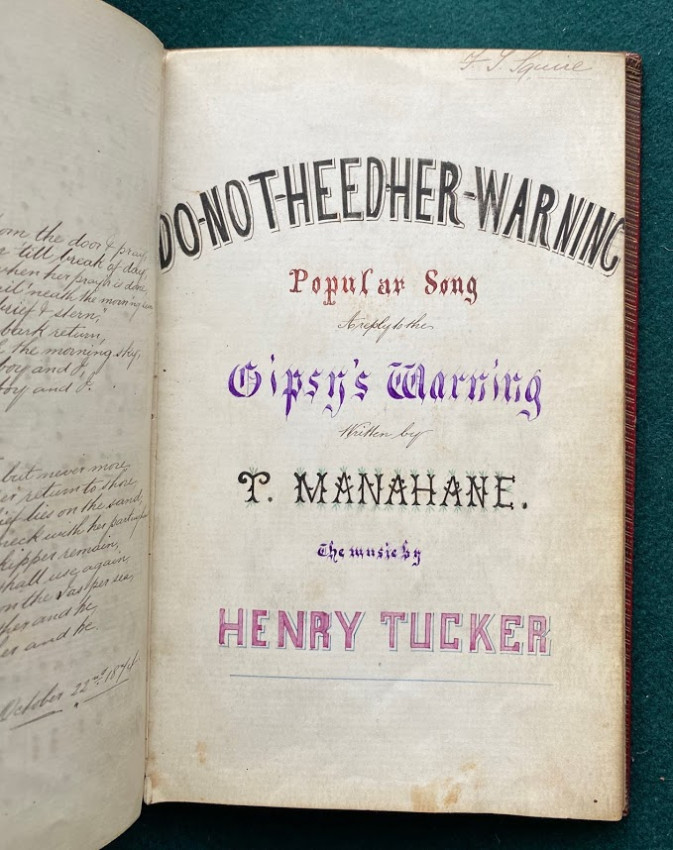 om the door & pray,
'till break of day,
when her prayer is done,
sail 'neath the morning sun
brief & stern,
bark return,
the morning sky,
boy and I,
boy and I.
but never more
return to shore
lies on the sand,
neck with her
skipper remain,
shall use again,
on the Jasper sea,
and he,
and he.
October 22nd 1874
F. S. Squire
DO-NOT-HEED-HER-WARNING
Popular Song
A reply to the
Gipsy's Warning
Written by
T. MANAHANE.
The music by
HENRY TUCKER